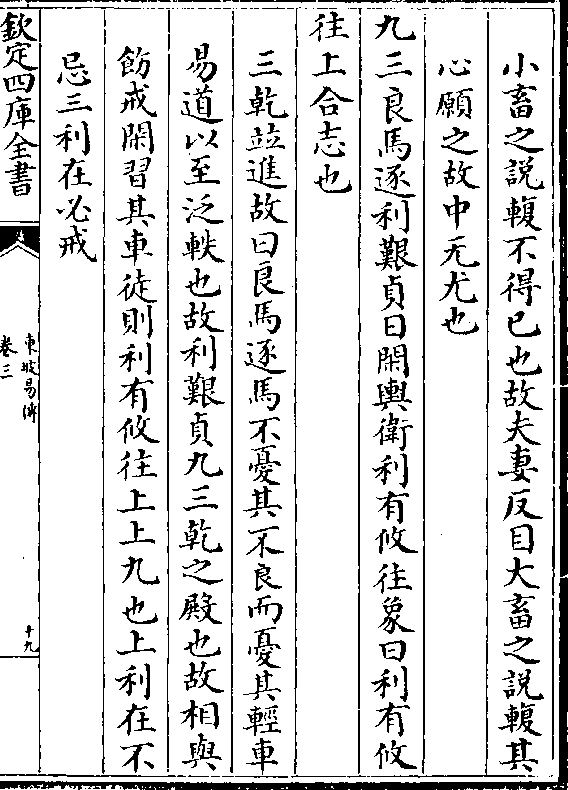 小畜之說輹不得已也故夫妻反目大畜之說輹其
心願之故中无尤也
九三良馬逐利艱貞曰閑輿衛利有攸往象曰利有攸
往上合志也
三乾並進故曰良馬逐馬不憂其不良而憂其輕車
易道以至泛軼也故利艱貞九三乾之殿也故相與
飭戒閑習其車徒則利有攸往上上九也上利在不
忌三利在必戒
欽定四庫全書
東坡易傳
卷三
十九